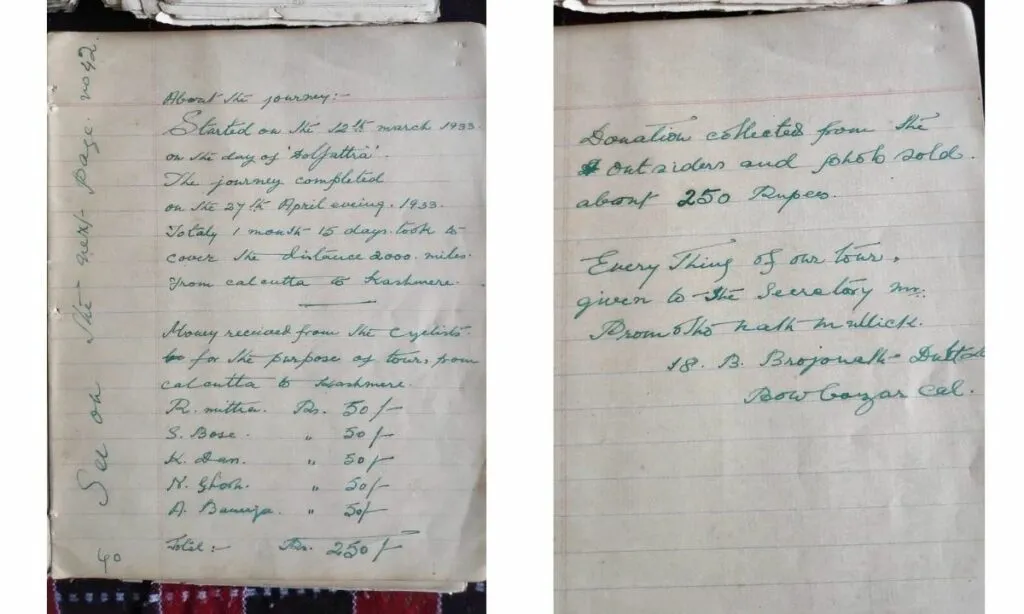 See on The next page. no 42.
40
About the journey:-
Started on the 12th march 1933.
on the day of 'DolJattra'.
The journey completed
on the 27th April eveing. 1933.
Totaly 1 month 15 days took to
cover the distance 2000. miles.
from calcutta to Kashmere.
Money received from the cyclists
for the purpose of tour, from
calcutta to Kashmere.
R. mittra. Rs. 50/-
S. Bose. " 50/-
K. Dan. " 50/-
N. Ghosh. " 50/-
A. Banerja. " 50/-
Total:- Rs. 250/-
Donation collected from the
outsiders and photo sold.
about 250 Rupees.
Every Thing of our tour,
given to the Secretory mr.
Promotho nath mullick.
18. B. Brojonath Dutta
Bowbazar cal.